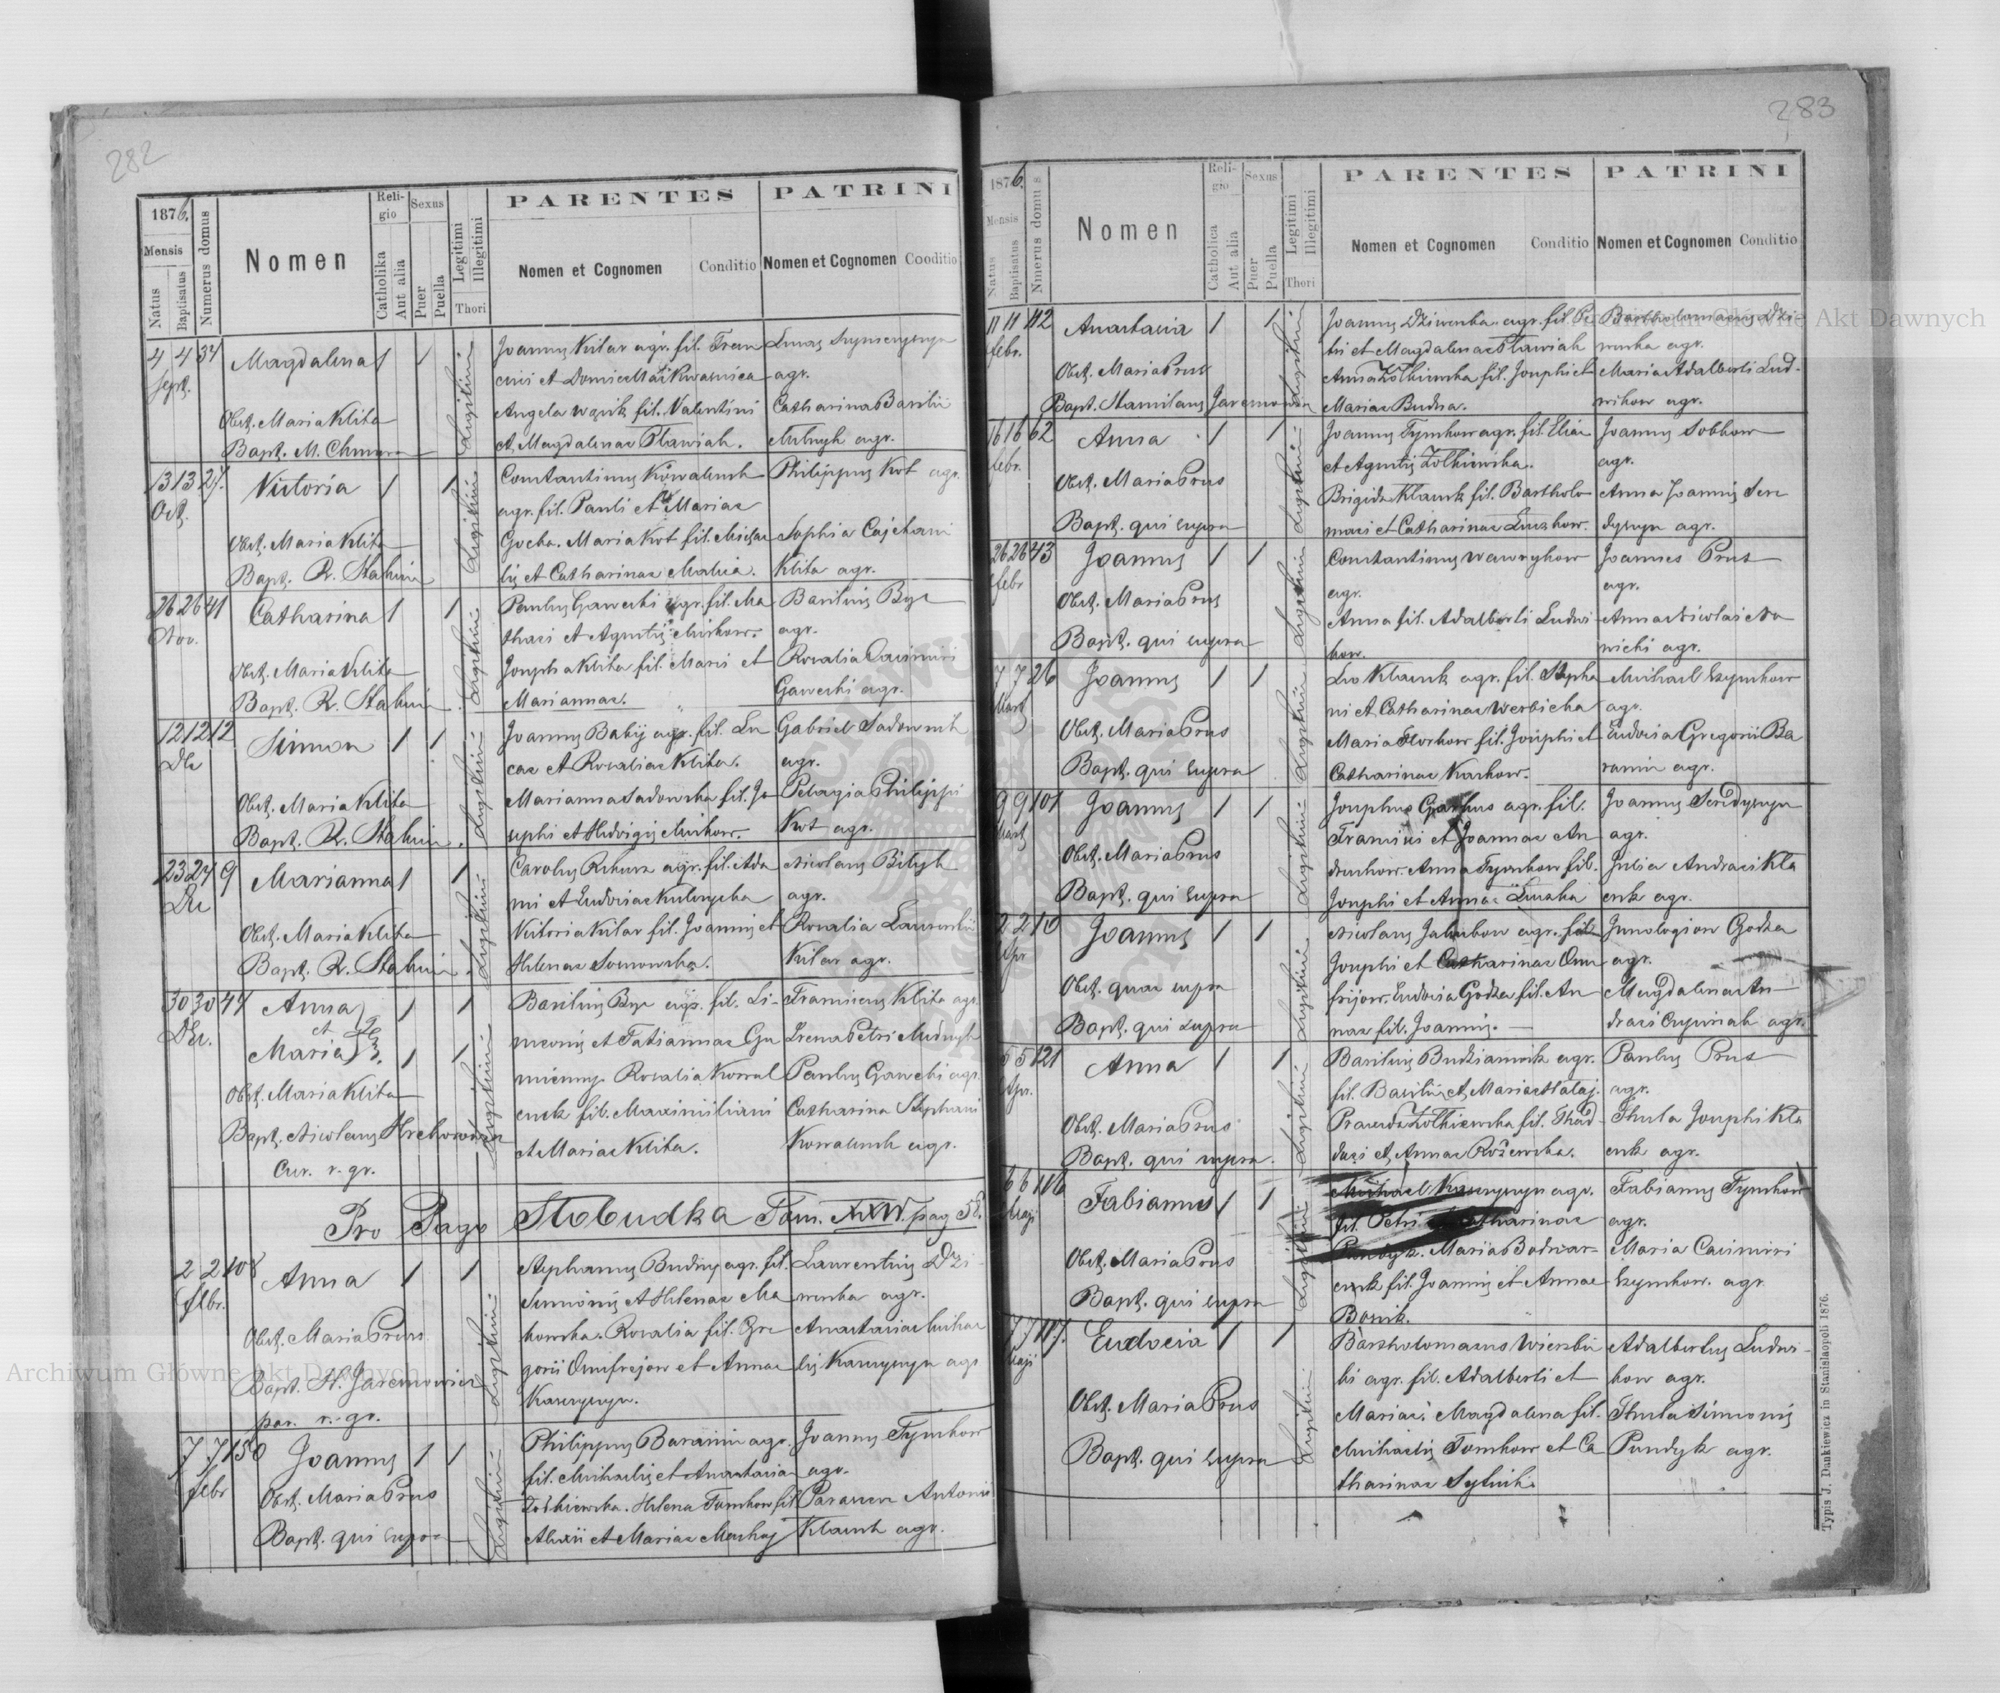 282
1876.
Mensis
Natus
Baptisatus
Numerus domus
Nomen
Religio
Catholika
Aut alia
Sexus
Puer
Puella
Legitimi
Illegitimi
Thori
PARENTES
Nomen et Cognomen
Conditio
PATRINI
Nomen et Cognomen
Cooditio
4 4 34 Magdalena 1 1
Sept.
Legitimi
Obst. Maria Klita
Bapt. M. Chmura
Joannes Kitar agr. fil. Fran
Angela fil. Valentini
et Magdalenae Stawiak.
Lucas
agr.
Catharina Basilii
Melnyk agr.
13 13 27. Victoria 1 1
Oct.
Legitimi
Obst. Maria Klita
Bapt. R. Stahin
Constantinus Kowalcuk
agr. fil. Pauli et Mariae
Gocka. Maria Kot fil. Michae
lis et Catharinae
Philippus Kot agr.
Sophia Cajetani
Klita agr.
26 26 41 Catharina 1 1
Nov.
Legitimi
Obst. Maria Klita
Bapt. R. Stahin
Paulus Gawecki agr. fil. Ma
thaei et Agnetis Mirkow.
Josepha Klita fil. Marci et
Mariannae.
Basilius Byc
agr.
Rosalia Casimiri
Gawecki agr.
12 12 12 Simon 1 1
Dec
Legitimi
Obst. Maria Klita
Bapt. R. Stahin.
Joannes Babij agr. fil. Lu
cae et Rosaliae Klita.
Marianna Sadowska fil. Jo
sephi et Hedvigis Mirkow.
Gabriel Sadownik
agr.
Pelagia Philippi
Kot agr.
23 24 9 Marianna 1 1
Dec
Legitimi
Obst. Maria Klita
Bapt. R. Stahin.
Carolus agr. fil. Ada
mi et Eudociae
Victoria Kitar fil. Joannis et
Helenae Sosnowska.
Nicolaus Bilyk
agr.
Rosalia Laurentii
Kitar agr.
30 30 44 Anna 1 1
Dec.
et
Maria 1 1
Legitimi
Obst. Maria Klita
Bapt. Nicolaus
Cur. r. gr.
Basilius Byc agr. fil. Si
meonis et Tatiannae Gu
Rosalia Kowal
cuk fil. Maximiliani
et Mariae Klita.
Franciscus Klita agr.
Irena Petri Melnyk
Paulus Gawecki agr.
Catharina Stephani
Kowalcuk agr.
Pro Pago Slobudka Tom. XXIV. pag 58.
2 2 108 Anna 1 1
febr.
Legitimi
Obst. Maria Prus
Bapt. St. Jaremowicz
par. r. gr.
Stephanus Budny agr. fil.
Simeonis et Helenae Ma
kowska. Rosalia fil. Gre
gorii Onufrejow et Annae
Laurentius Dzi
wenka agr.
Anastasia Micha
lis agr
7 7 150 Joannes 1 1
febr
Legitimi
Obst. Maria Prus
Bapt. qui supra
Philippus Baranin agr.
fil. Michaelis et Anastasiae
Zolkiewska. Helena Tomkow fil
Alexii et Mariae
Joannes Tymkow
agr.
Parascen Antonii
Klacuk agr.
283
1876.
Mensis
Natus
Baptisatus
Nimerus domus
Nomen
Religio
Catholica
Aut alia
Sexus
Puer
Puella
Legitimi
Illegitimi
Thori
PARENTES
Nomen et Cognomen
Conditio
PATRINI
Nomen et Cognomen
Conditio
11 11 112 Anastasia 1 1
febr.
Legitimi
Obst. Maria Prus
Bapt. Stanislaus Jaremowicz
Joannes Dziwenka agr. fil. Pe
tri et Magdalenae Stawiak
Anna Zolkiewska fil. Josephi et
Mariae Budna.
Bartholomaeus Dzi
wenka agr.
Maria Adalberti Lud-
wikow agr.
16 16 62 Anna 1 1
febr.
Legitimi
Obst. Maria Prus
Bapt. qui supra
Joannes Tymkow agr. fil. Eliae
et Agnetis Zolkiewska.
Brigida Klacuk fil. Bartholo
maei et Catharinae
Joannes Sobkow
agr.
Anna Joannis Sere
dyszyn agr.
26 26 43 Joannes 1 1
febr
Legitimi
Obst. Maria Prus
Bapt. qui supra
Constantinus Wawrykow
agr.
Anna fil. Adalberti Ludwi
kow.
Joannes Prus
agr.
Anna Nicolai Sa
wicki agr.
7 7 26 Joannes 1 1
Mart
Legitimi
Obst. Maria Prus
Bapt. qui supra
Leo Klacuk agr. fil. Stepha
ni et Catharinae Werbicka
Maria fil. Josephi et
Catharinae Karkow.
Michael Szymkow
agr.
Eudocia Gregorii Ba
ranin agr.
9 9 101 Joannes 1 1
Mart
Legitimi
Obst. Maria Prus
Bapt. qui supra
Josephus agr. fil.
Francisci et Joannae An
druchow. Anna Tymkow fil.
Josephi et Annae
Joannes Seredyszyn
agr.
Julia Andreae Kla
cuk agr.
2 2 10 Joannes 1 1
Apr
Legitimi
Obst. quae supra
Bapt. qui supra
Nicolaus Jakubow agr. fil.
Josephi et Catharinae Onu
frijow. Eudocia Godza fil. An
nae fil. Joannis.
Godza
agr.
Magdalena An
dreae agr.
5 5 121 Anna 1 1
Apr.
Legitimi
Obst. Maria Prus
Bapt. qui supra.
Basilius Budzianik agr.
fil. Basilii et Mariae Halaj.
Zolkiewska fil. Thad-
daei et Annae Rozewska.
Paulus Prus
agr.
Thecla Josephi Kla
cuk agr.
6 6 116 Fabianus 1 1
Maji
Legitimi
Obst. Maria Prus
Bapt. qui supra
Michael agr.
fil. Petri et Catharinae
Pundyk. Maria Bodnar
cuk fil. Joannis et Annae
Fabianus Tymkow
agr.
Maria Casimiri
Szymkow. agr
7 7 117. Eudocia 1 1
Maji
Legitimi
Obst. Maria Prus
Bapt. qui supra
Bartholomaeus Wierzbic
ki agr. fil. Adalberti et
Mariae. Magdalena fil.
Michaelis Tomkow et Ca
tharinae
Adalbertus Ludwi-
kow agr.
Thecla Simeonis
Pundyk agr.
Typis J. Dankiewicz in Stanislaopoli 1876.
Archiwum Główne Akt Dawnych
Archiwum Główne Akt Dawnych